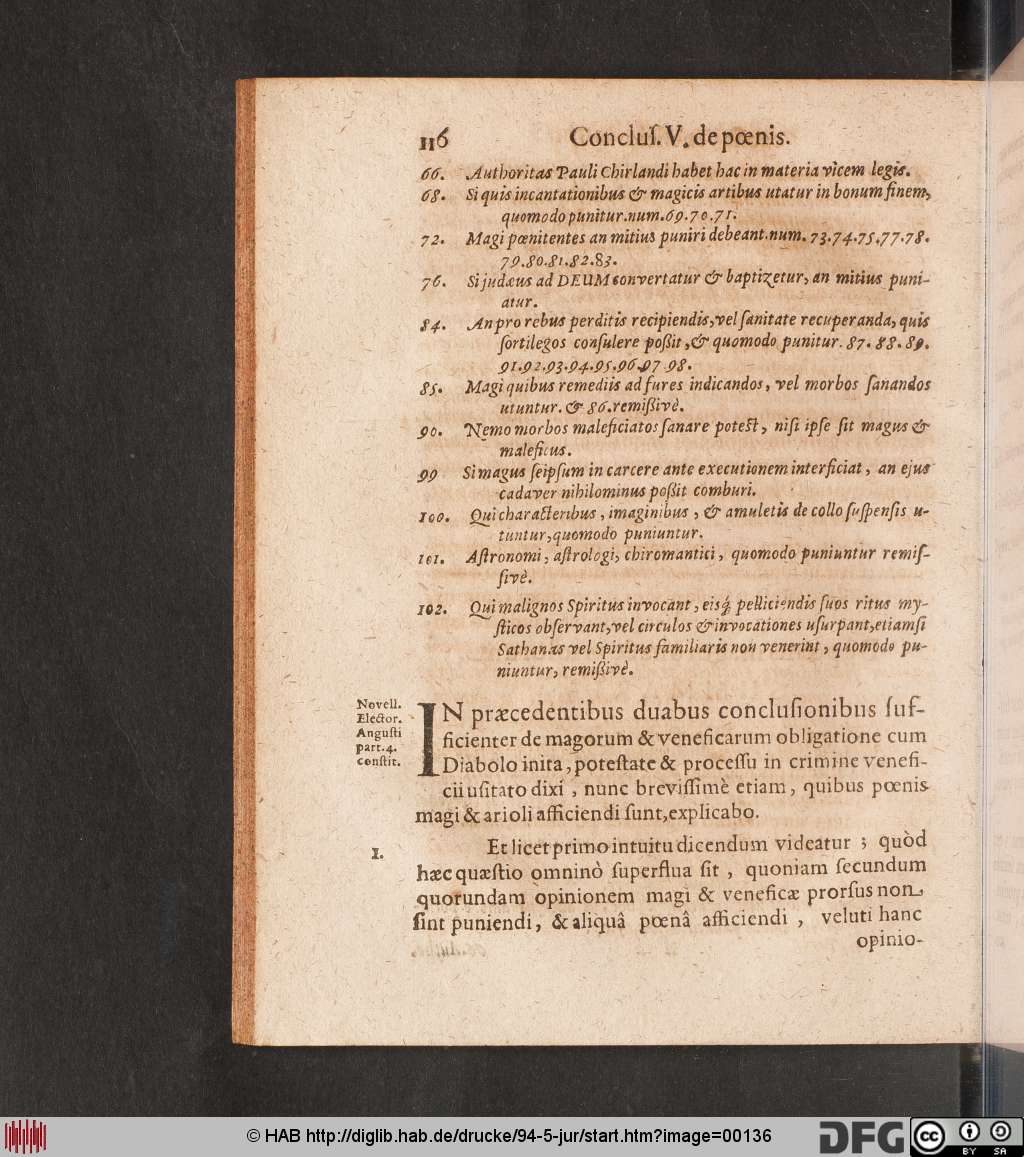 116 Concluſ. V. de pœnis.
66. Authoritas Pauli Chirlandi habet hac in materia vicem legis.
68. Si quis incantationibus & magicis artibus utatur in bonum finem,
quomodo punitur.num.69.70.71.
72. Magi pœnitentes an mitius puniri debeant.num. 73.74.75.77.78.
79.80.81.82.83.
76. Si judæus ad DEUM convertatur & baptizetur, an mitius puni-
atur.
84. An pro rebus perditis recipiendis, vel ſanitate recuperanda, quis
ſortilegos conſulere poßit, & quomodo punitur. 87. 88. 89.
91.92.93.94.95.96.97 98.
85. Magi quibus remediis ad fures indicandos, vel morbos ſanandos
utuntur. & 86.remißivè.
90. Nemo morbos maleficiatos ſanare poteſt, niſi ipſe ſit magus &
maleficus.
99 Si magus ſeipſum in carcere ante executionem interficiat, an ejus
cadaver nihilominus poßit comburi.
100. Qui characteribus, imaginibus, & amuletis de collo ſuſpenſis u-
tuntur, quomodo puniuntur.
101. Aſtronomi, aſtrologi, chiromantici, quomodo puniuntur remiſ-
ſivè.
102. Qui malignos Spiritus invocant, eisq́; pelliciendis ſuos ritus my-
ſticos obſervant, vel circulos & invocationes uſurpant, etiamſi
Sathanas vel Spiritus familiaris non venerint, quomodo pu-
niuntur, remißivè.
Novell.
Elector.
Anguſti
part. 4.
conſtit.
IN præcedentibus duabus concluſionibus ſuf-
ficienter de magorum & veneficarum obligatione cum
Diabolo inita, poteſtate & proceſſu in crimine venefi-
cii uſitato dixi, nunc breviſſimè etiam, quibus pœnis
magi & arioli afficiendi ſunt, explicabo.
1. Et licet primo intuitu dicendum videatur; quòd
hæc quæſtio omninò ſuperflua ſit, quoniam ſecundum
quorundam opinionem magi & veneficæ prorſus non
ſint puniendi, & aliquâ pœnâ afficiendi, veluti hanc
opinio-
© HAB http://diglib.hab.de/drucke/94-5-jur/start.htm?image=00136
DFG
cc
BY SA